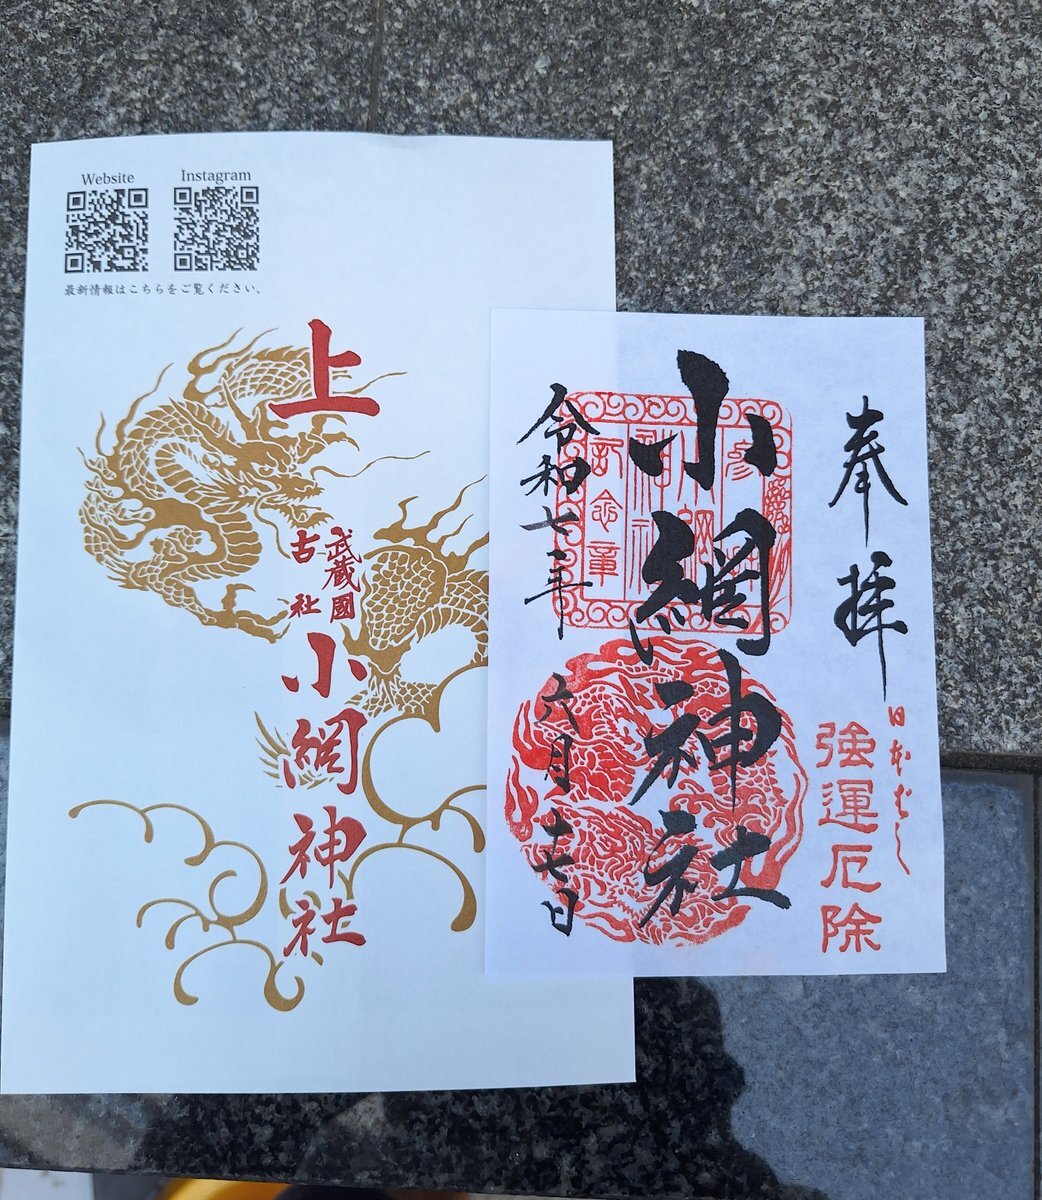 Website
Instagram
最新情報はこちらをご覧ください。
上
武蔵國
古社
小網神社
奉拝
日本ばし
強運厄除
小網神社
令和七年
六月十七日
記念章